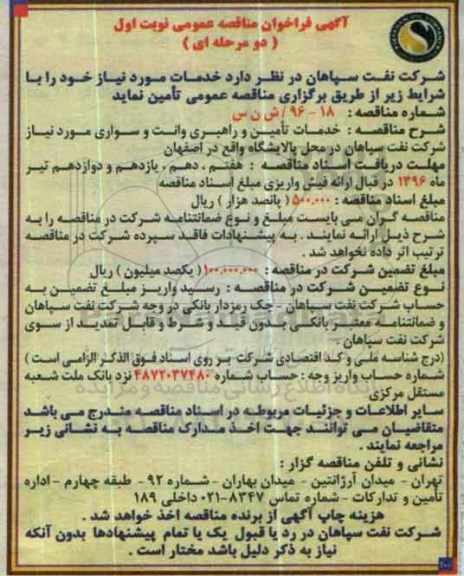 آگهی فراخوان مناقصه عمومی نوبت اول
( دو مرحله ای )
شرکت نفت سپاهان در نظر دارد خدمات مورد نیاز خود را با
شرایط زیر از طریق برگزاری مناقصه عمومی تأمین نماید
شماره مناقصه : ۱۸ - ۹۶ / ش ن س
شرح مناقصه : خدمات تأمین و راهبری وانت و سواری مورد نیاز
شرکت نفت سپاهان در محل پالایشگاه واقع در اصفهان
مهلت دریافت اسناد مناقصه : هفتم ، دهم ، یازدهم و دوازدهم تیر
ماه ۱۳۹۶ در قبال ارائه فیش واریزی مبلغ اسناد مناقصه
مبلغ اسناد مناقصه : ۵۰۰.۰۰۰ ( پانصد هزار ) ریال
مناقصه گران می بایست مبلغ و نوع ضمانتنامه شرکت در مناقصه را به
شرح ذیل ارائه نمایند . به پیشنهادات فاقد سپرده شرکت در مناقصه
ترتیب اثر داده نخواهد شد .
مبلغ تضمین شرکت در مناقصه : ۱۰۰.۰۰۰.۰۰۰ ( یکصد میلیون ) ریال
نوع تضمین شرکت در مناقصه : رسید واریز مبلغ تضمین به
حساب شرکت نفت سپاهان - چک رمزدار بانکی در وجه شرکت نفت سپاهان
و ضمانتنامه معتبر بانکی بدون قید و شرط و قابل تمدید از سوی
شرکت نفت سپاهان .
(درج شناسه ملی و کد اقتصادی شرکت بر روی اسناد فوق الذکر الزامی است )
شماره حساب واریز وجه : حساب شماره ۴۸۷۲۰۳۷۴۸۰ نزد بانک ملت شعبه
مستقل مرکزی
سایر اطلاعات و جزئیات مربوطه در اسناد مناقصه مندرج می باشد
متقاضیان می توانند جهت اخذ مدارک مناقصه به نشانی زیر
مراجعه نمایند .
نشانی و تلفن مناقصه گزار :
تهران - میدان آرژانتین - میدان بهاران - شماره ۹۲ - طبقه چهارم - اداره
تأمین و تدارکات - شماره تماس ۸۳۴۷-۰۲۱ داخلی ۱۸۹
هزینه چاپ آگهی از برنده مناقصه اخذ خواهد شد .
شرکت نفت سپاهان در رد یا قبول یک یا تمام پیشنهادها بدون آنکه
نیاز به ذکر دلیل باشد مختار است .